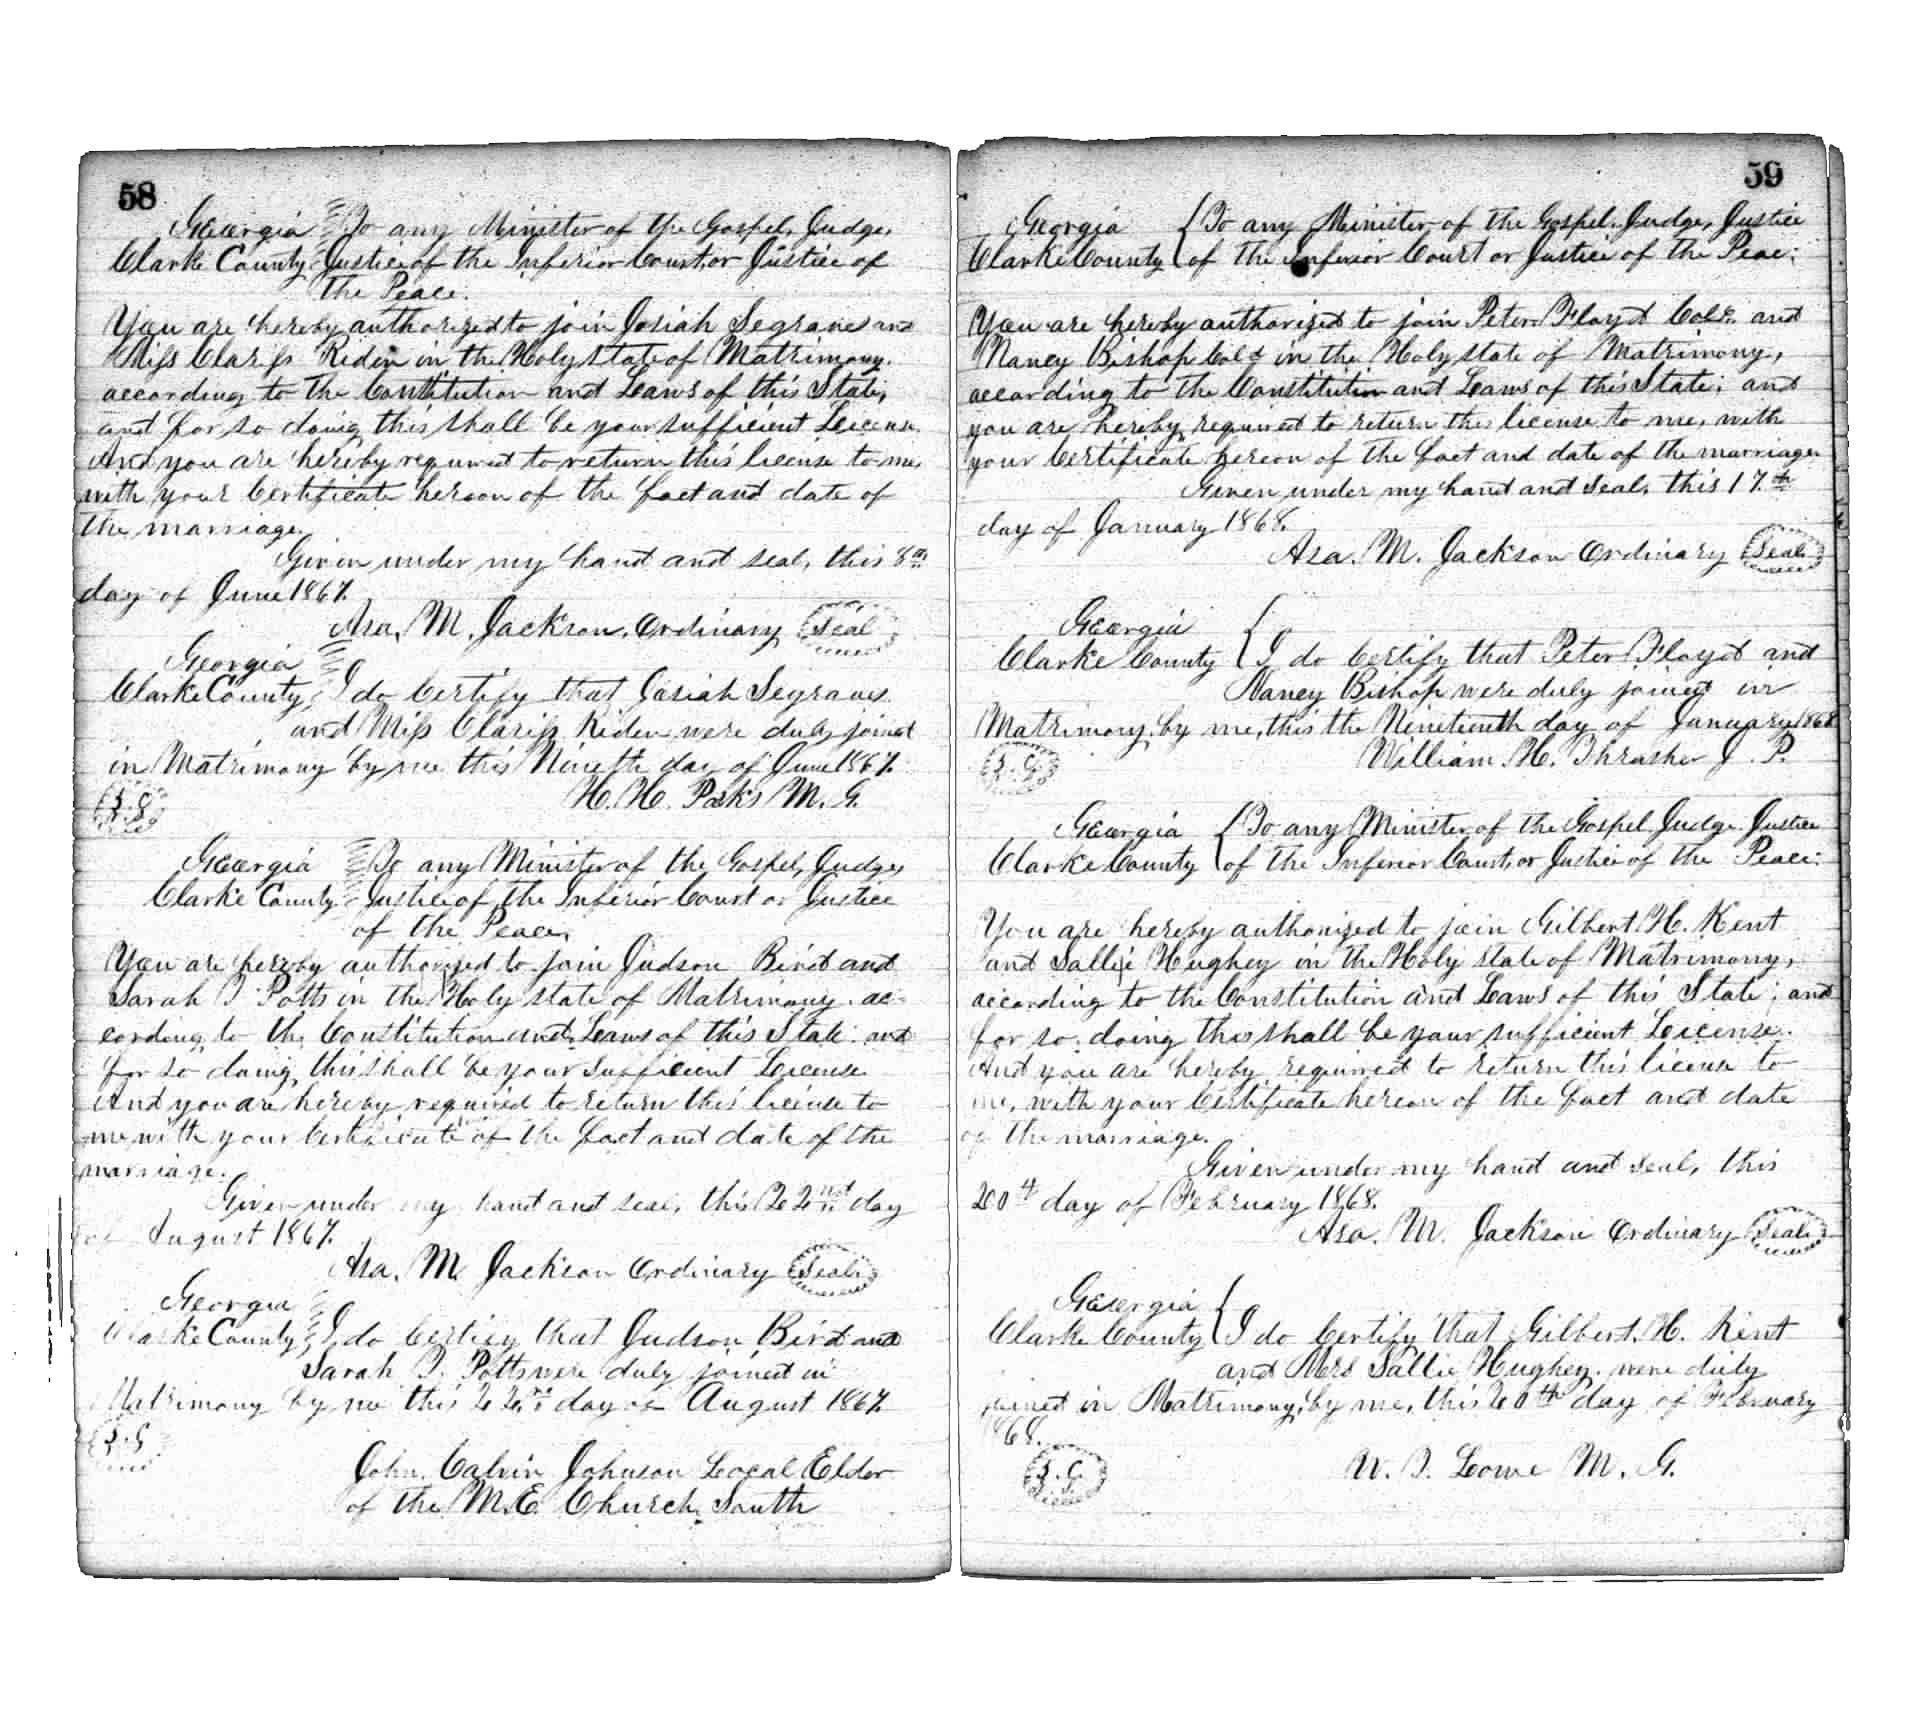 58
Georgia To any Minister of the Gospel, Judge,
Clarke County Justice of the Inferior Court, or Justice of
the Peace.
You are hereby authorized to join Josiah Segraves and
Miss Clariss Riden in the Holy state of Matrimony.
according to the Constitution and Laws of this State,
and for so doing this shall be your sufficient License.
And you are hereby required to return this license to me,
with your Certificate hereon of the fact and date of
the marriage.
Given under my hand and seal, this 8th
day of June 1867.
Asa. M. Jackson. Ordinary Seal
Georgia
Clarke County I do Certify that Josiah Segraves
and Miss Clariss Riden were duly joined
in Matrimony by me this Nineth day of June 1867.
H. H. Parks M. G.
Georgia To any Minister of the Gospel, Judge,
Clarke County Justice of the Inferior Court or Justice
of the Peace,
You are hereby authorized to join Judson Bird and
Sarah J. Potts in the Holy state of Matrimony. ac-
cording to the Constitution and Laws of this State: and
for so doing, this shall be your sufficient License
And you are hereby required to return this license to
me with your Certificate of the fact and date of the
marriage.
Given under my hand and seal, this 22nd day
of August 1867.
Asa. M. Jackson Ordinary Seal
Georgia
Clarke County I do Certify that Judson Bird and
Sarah J. Potts were duly joined in
Matrimony by me this 22nd day of August 1867.
John. Calvin Johnson Local Elder
of the M.E. Church, South
59
Georgia { To any Minister of the Gospel, Judge, Justice
Clarke County of the Inferior Court or Justice of the Peac:
You are hereby authorized to join Peter Floyd Cold. and
Nancy Bishop Cold in the Holy state of Matrimony,
according to the Constitution and Laws of this State; and
you are hereby required to return this license to me, with
your Certificate hereon of the fact and date of the marriage.
Given under my hand and seal, this 17.th
day of January 1868.
Asa. M. Jackson Ordinary Seal
Georgia {
Clarke County I do Certify that Peter Floyd and
Nancy Bishop were duly joined in
Matrimony, by me, this the Nineteenth day of January 1868
William. H. Thrasher J. P.
Georgia { To any Minister of the Gospel, Judge. Justice
Clarke County of the Inferior Court, or Justice of the Peace:
You are hereby authorized to join Gilbert. H. Kent
and Sallie Hughey in the Holy state of Matrimony,
according to the Constitution and Laws of this State; and
for so. doing this shall be your sufficient License.
And you are hereby required to return this license to
me, with your Certificate hereon of the fact and date
of the marriage.
Given under my hand and seal, this
20th day of February 1868.
Asa. M. Jackson Ordinary Seal
Georgia {
Clarke County I do Certify that Gilbert. H. Kent
and Mrs Sallie Hughey. were duly
joined in Matrimony, by me, this 20th day of February
1868.
W. J. Lowe M. G.